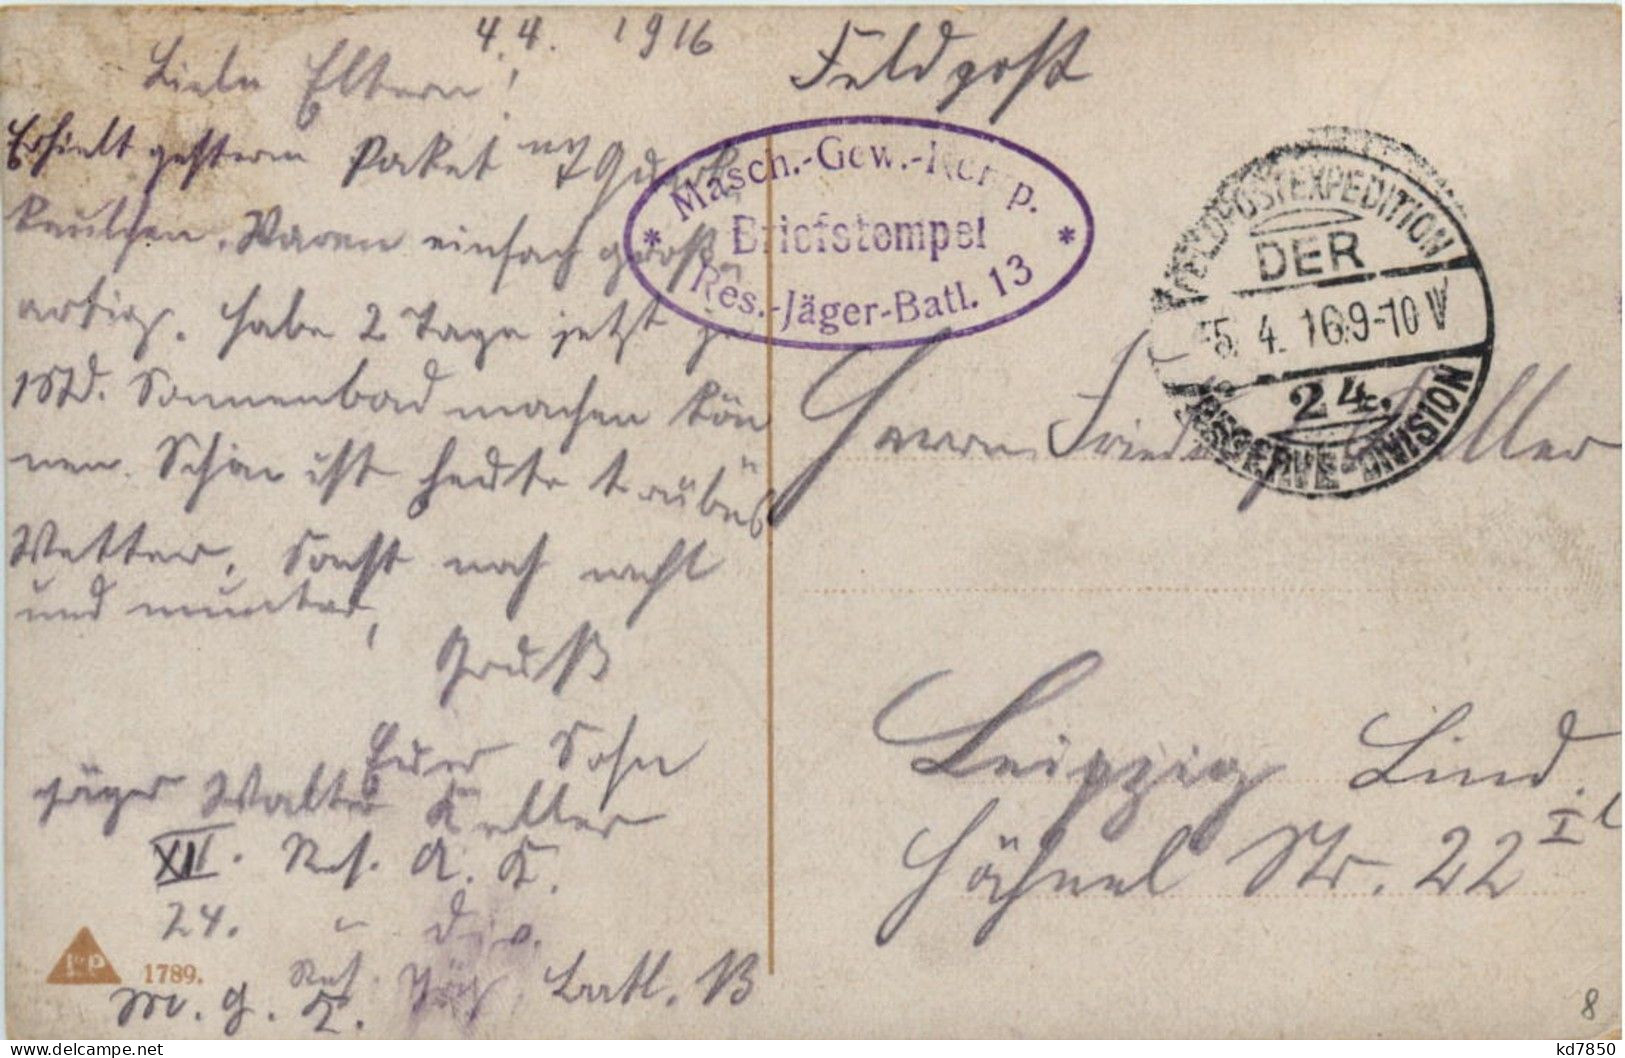 4.4. 1916
Liebe Eltern!
Erhielt gestern Paket
keulchen. Waren einfach groß-
artig. Habe 2 Tage jetzt je
1 Std. Sonnenbad machen kön
nen. Schon ist heute trübes
Wetter. Sonst noch wohl
und munter,
Gruß
Euer Sohn
Jäger Walter Keller
XII. Res. A. K.
24. " Div.
Res. Jäg. Batl. 13
M. G. K.
1789.
Feldpost
Masch.-Gew.-Komp.
Briefstempel
Res.-Jäger-Batl. 13
FELDPOSTEXPEDITION
DER
5. 4. 16 9-10 V
24.
RESERVE-DIVISION
Herrn Fried. Keller
Leipzig Lind.
Hähnel Str. 22 I l
8
kd7850